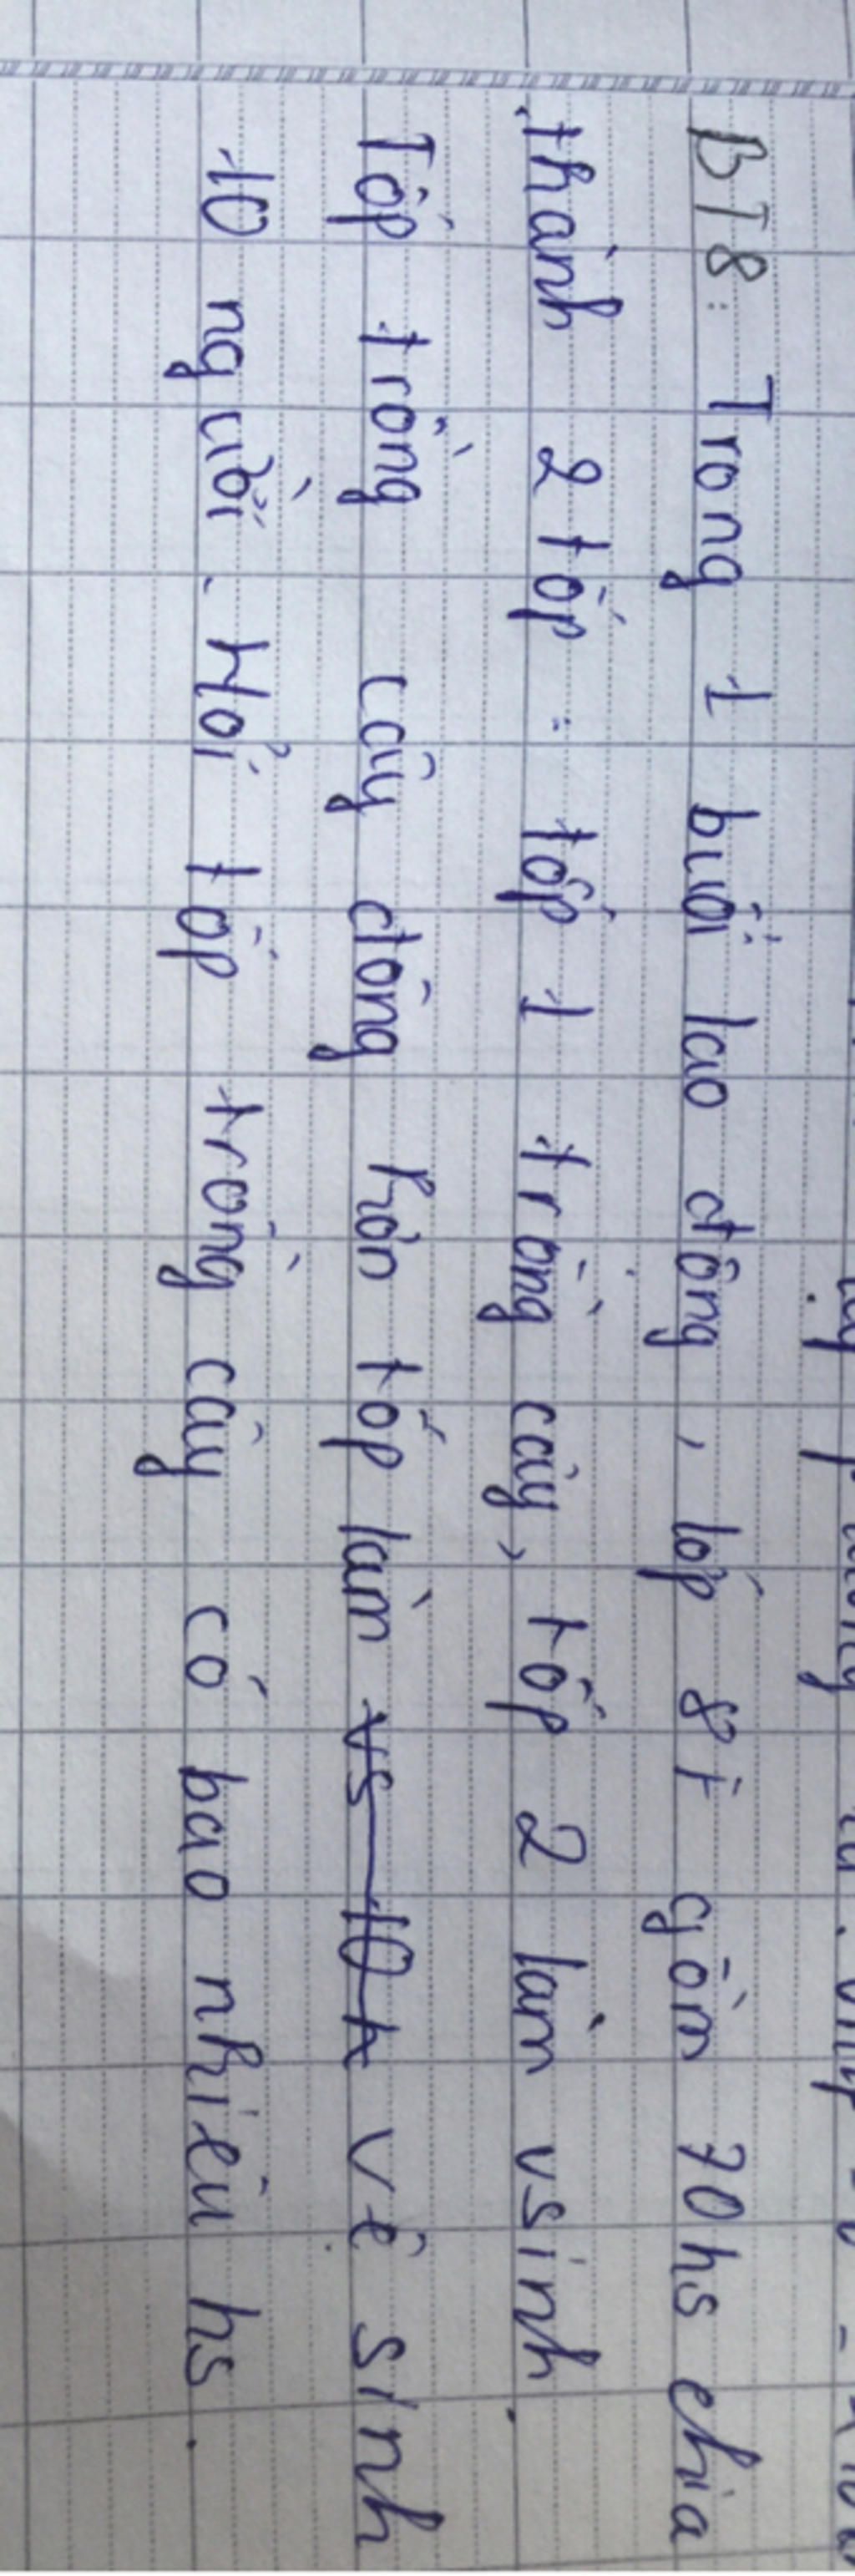 BT8: Trong 1 buổi lao động, lớp 8A gồm 70hs chia
thành 2 tốp : tốp 1 trồng cây, tốp 2 làm vsinh.
Tốp trồng cây đông hơn tốp làm vệ sinh
10 người. Hỏi tốp trồng cây có bao nhiêu hs.